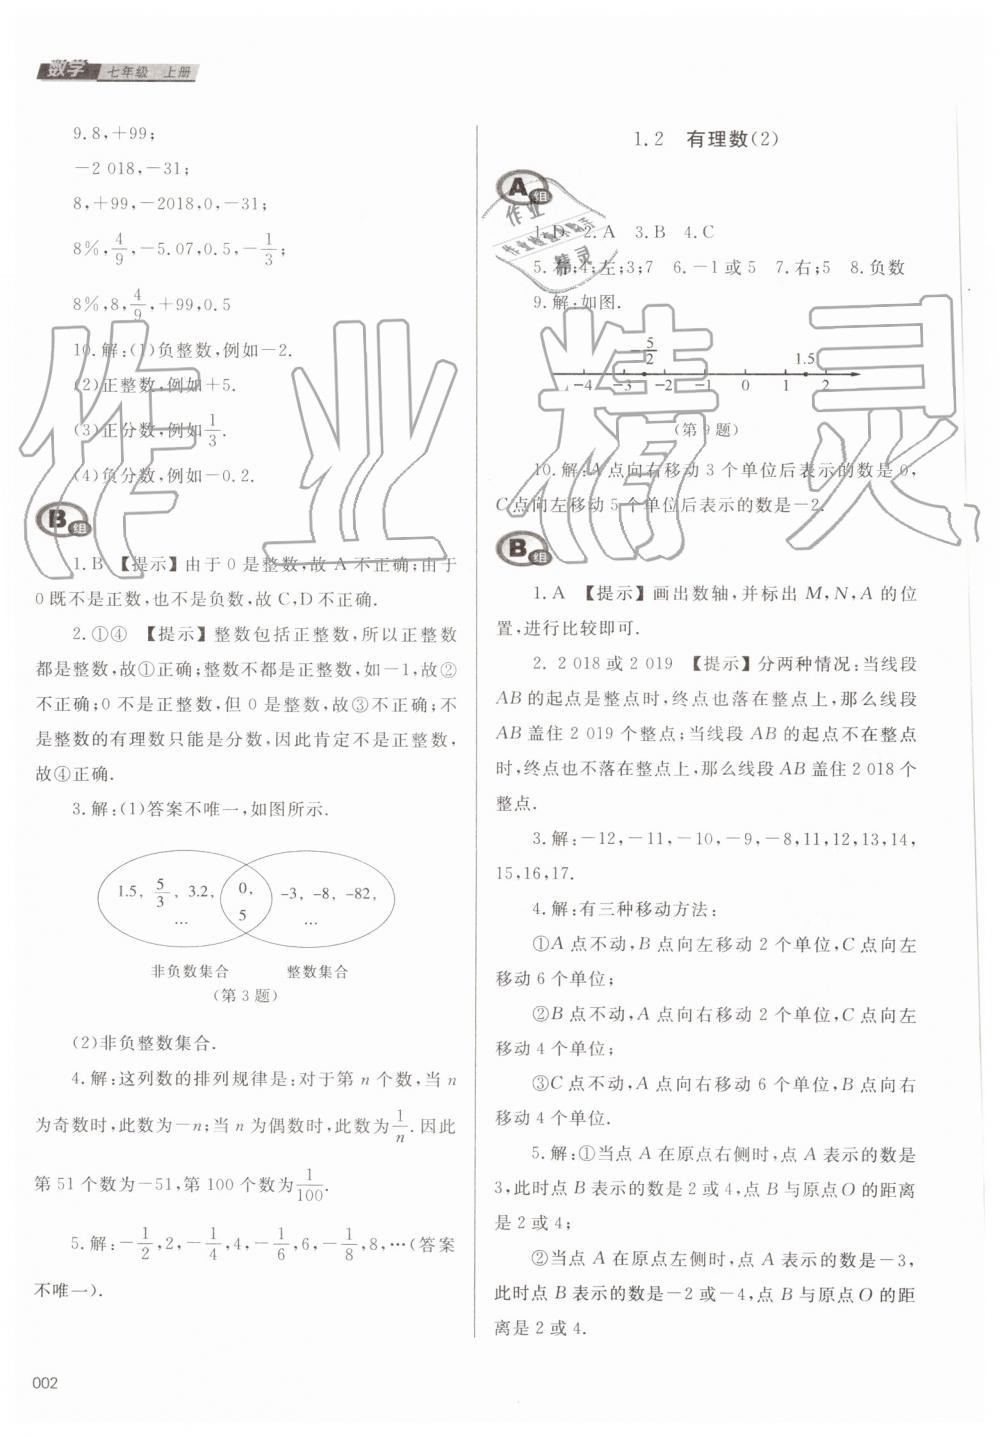 数学 七年级 上册
9.8,+99;
-2 018,-31;
8,+99,-2018,0,-31;
8%,4/9,-5.07,0.5,-1/3;
8%,8,4/9,+99,0.5
10.解:(1)负整数,例如-2.
(2)正整数,例如+5.
(3)正分数,例如1/3.
(4)负分数,例如-0.2.
B组
1.B 【提示】由于0是整数,故A不正确;由于
0既不是正数,也不是负数,故C,D不正确.
2.①④ 【提示】整数包括正整数,所以正整数
都是整数,故①正确;整数不都是正整数,如-1,故②
不正确;0不是正整数,但0是整数,故③不正确;不
是整数的有理数只能是分数,因此肯定不是正整数,
故④正确.
3.解:(1)答案不唯一,如图所示.
1.5, 5/3, 3.2, … 0, 5 -3, -8, -82, …
非负数集合 整数集合
(第3题)
(2)非负整数集合.
4.解:这列数的排列规律是:对于第n个数,当n
为奇数时,此数为-n;当n为偶数时,此数为1/n.因此
第51个数为-51,第100个数为1/100.
5.解:-1/2,2,-1/4,4,-1/6,6,-1/8,8,…(答案
不唯一).
002
1.2 有理数(2)
A组
1.D 2.A 3.B 4.C
5.右;4;左;3;7 6.-1或5 7.右;5 8.负数
9.解:如图.
-5/2 1.5
-4 -3 -2 -1 0 1 2
(第9题)
10.解:A点向右移动3个单位后表示的数是0,
C点向左移动5个单位后表示的数是-2.
B组
1.A 【提示】画出数轴,并标出M,N,A的位
置,进行比较即可.
2. 2 018或2 019 【提示】分两种情况:当线段
AB的起点是整点时,终点也落在整点上,那么线段
AB盖住2 019个整点;当线段AB的起点不在整点
时,终点也不落在整点上,那么线段AB盖住2 018个
整点.
3.解:-12,-11,-10,-9,-8,11,12,13,14,
15,16,17.
4.解:有三种移动方法:
①A点不动,B点向左移动2个单位,C点向左
移动6个单位;
②B点不动,A点向右移动2个单位,C点向左
移动4个单位;
③C点不动,A点向右移动6个单位,B点向右
移动4个单位.
5.解:①当点A在原点右侧时,点A表示的数是
3,此时点B表示的数是2或4,点B与原点O的距离
是2或4;
②当点A在原点左侧时,点A表示的数是-3,
此时点B表示的数是-2或-4,点B与原点O的距
离是2或4.
作业精灵
作业
精灵